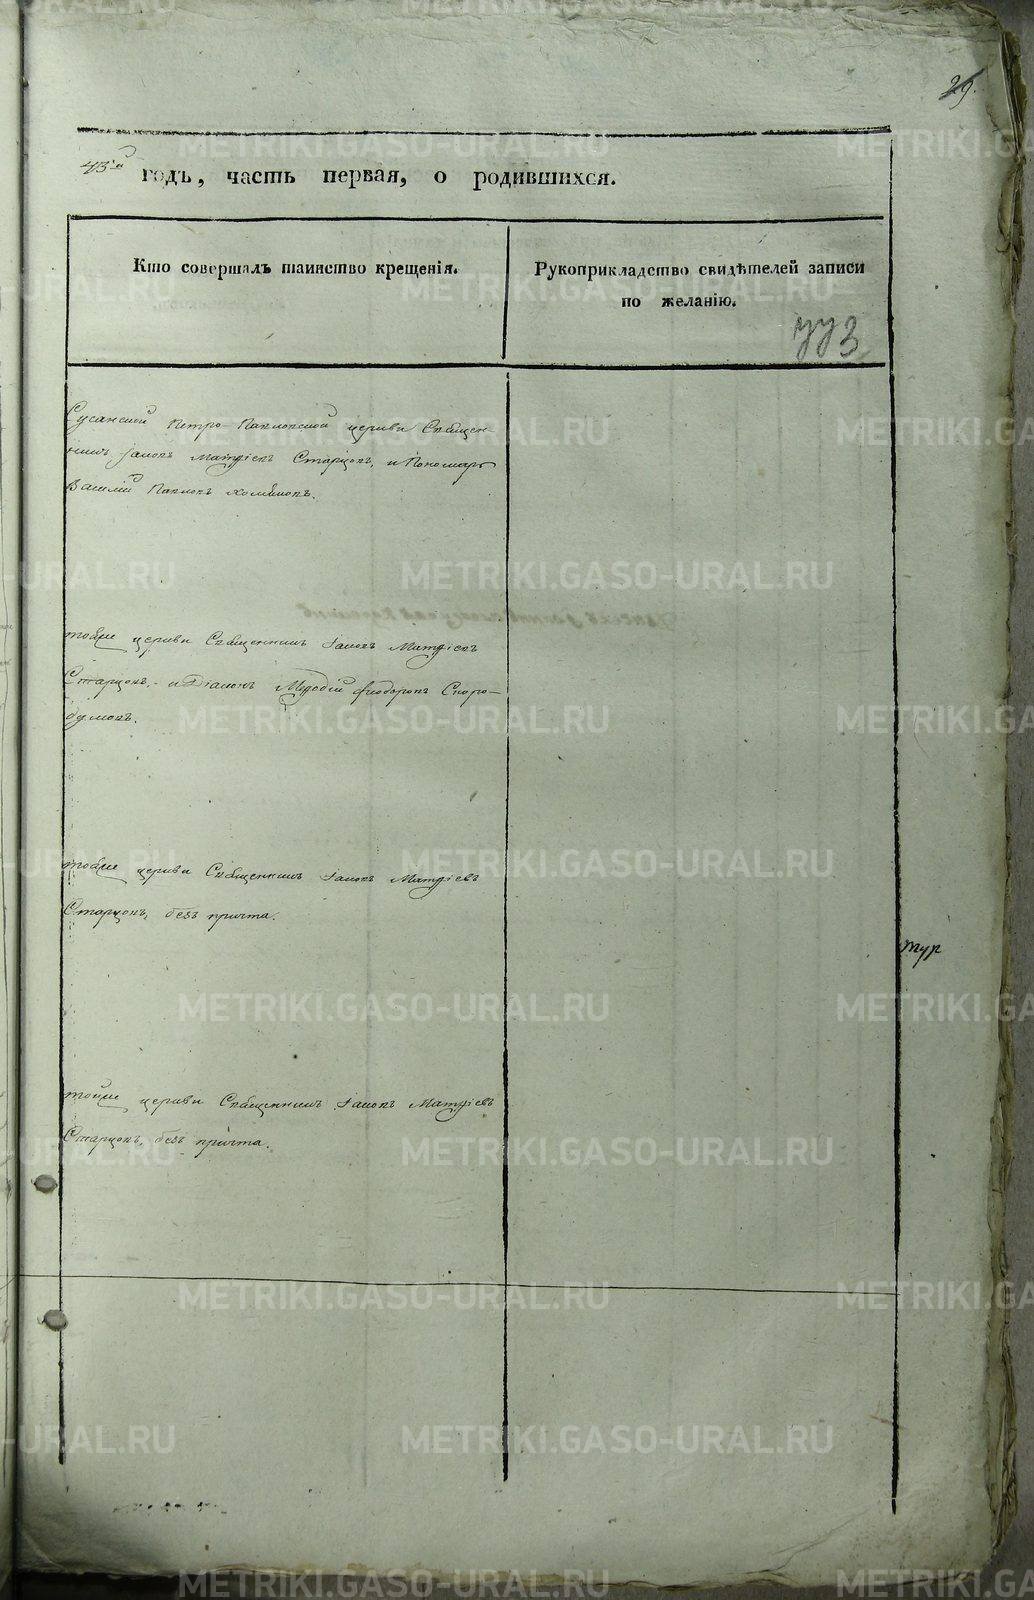 29.
43й годъ, часть первая, о родившихся.
Кто совершалъ таинство крещенія.
Рукоприкладство свидѣтелей записи
по желанію.
Сусанской Петро-Павловской церкви Священ-
никъ Іаковъ Матѳіевъ Старцовъ, и Пономарь
Василій Павловъ Хомяковъ.
тойже церкви Священникъ Іаковъ Матѳіевъ
Старцовъ, и Діаконъ Меѳодій Ѳеодоровъ Скоро-
думовъ.
тойже церкви Священникъ Іаковъ Матѳіевъ
Старцовъ, безъ причта.
тур
тойже церкви Священникъ Іаковъ Матѳіевъ
Старцовъ, безъ причта.
METRIKI.GASO-URAL.RU